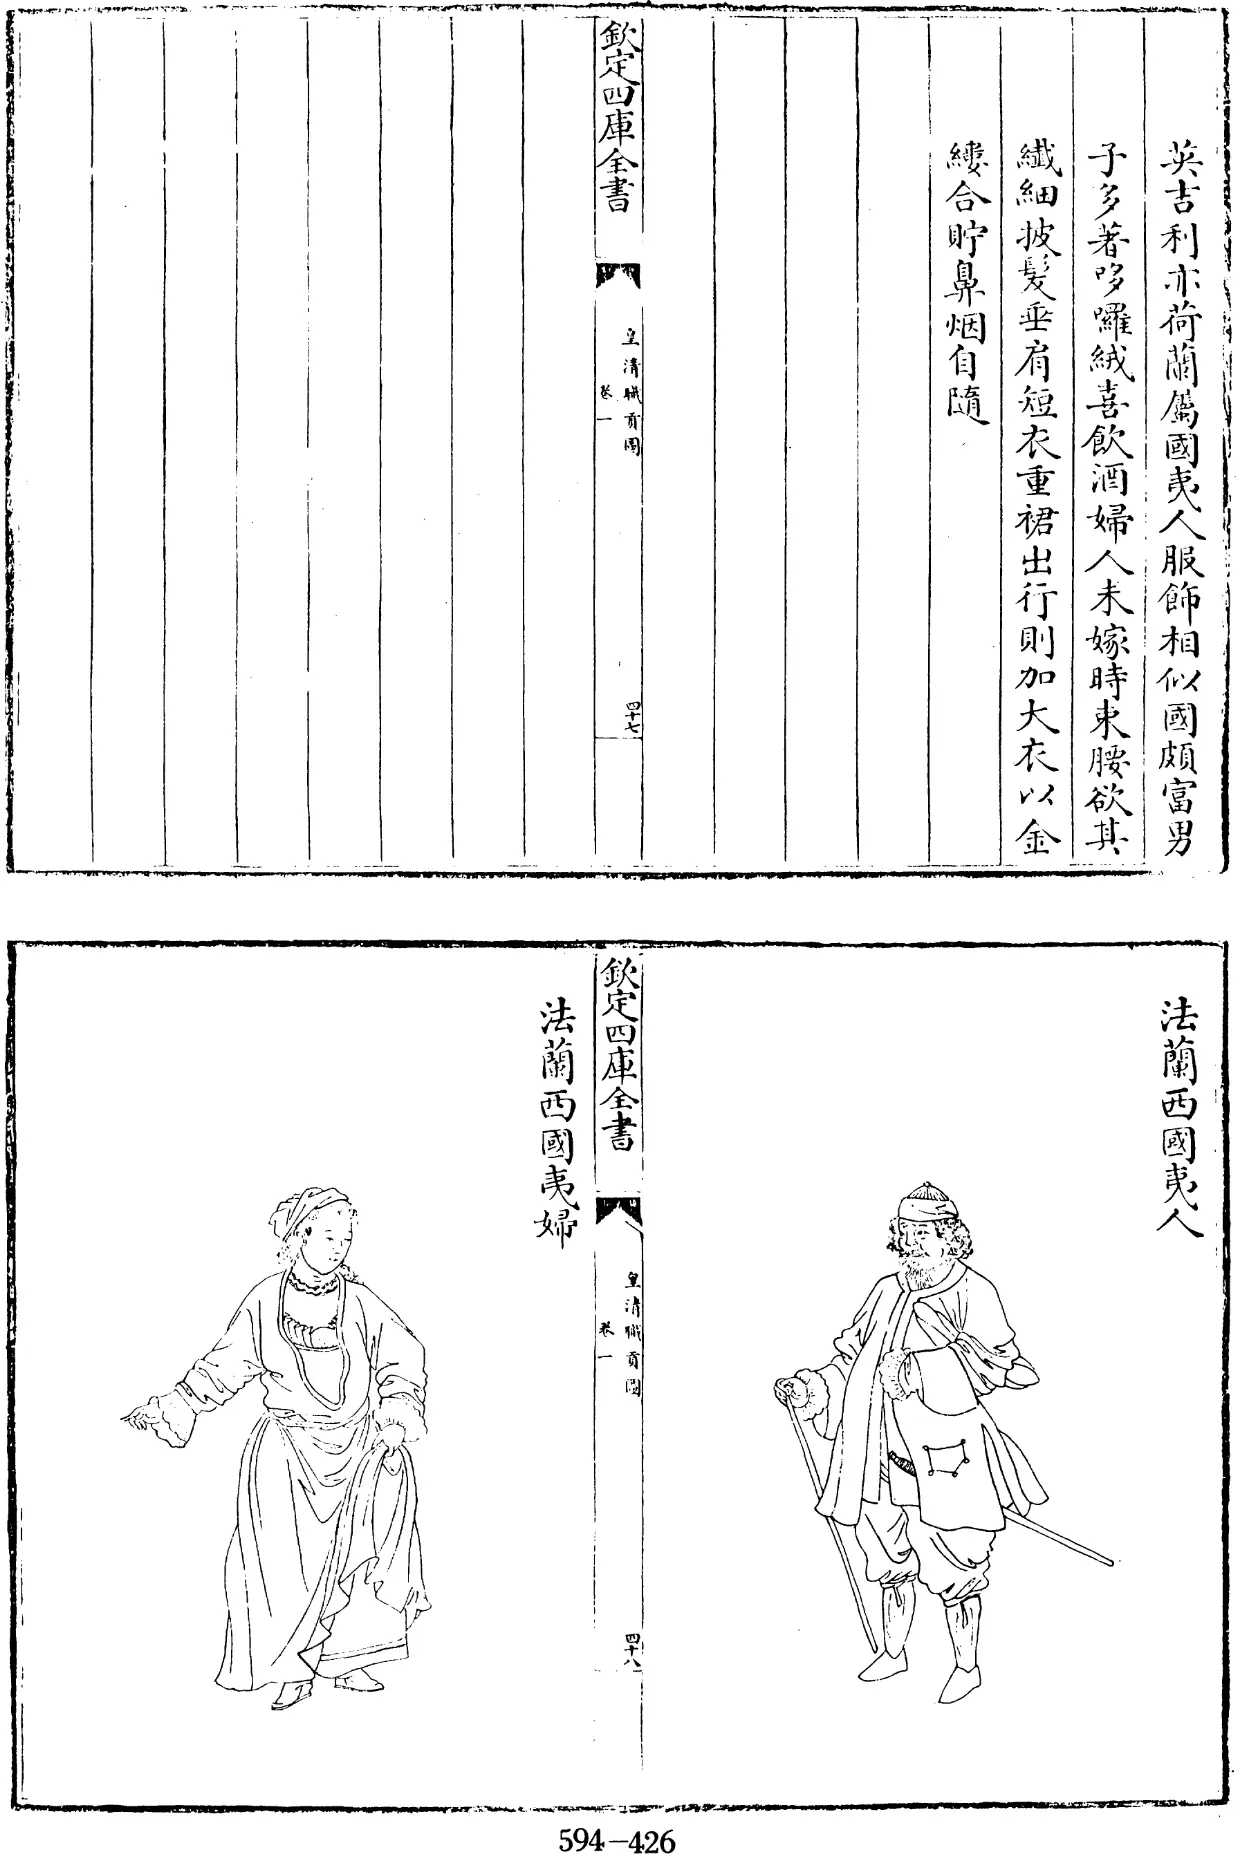 英吉利亦荷蘭屬國夷人服飾相似國頗富男
子多著哆囉絨喜飲酒婦人未嫁時束腰欲其
纖細披髮垂肩短衣重裙出行則加大衣以金
縷合貯鼻烟自隨
欽定四庫全書
皇清職貢圖
卷一
四十七
法蘭西國夷人
欽定四庫全書
皇清職貢圖
卷一
四十八
法蘭西國夷婦
594-426